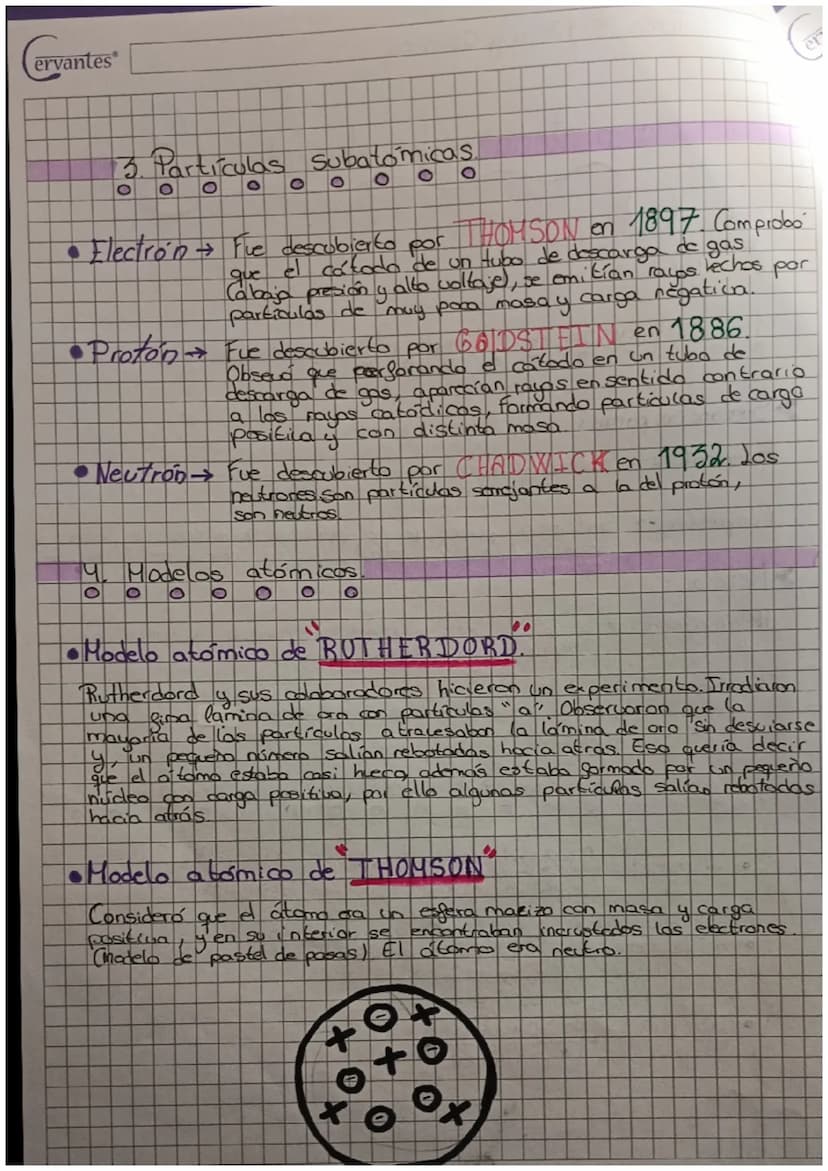 Cervantes
3. Partículas subatómicas.
• Electrón → Fue descubierto por THOMSON en 1897. Comprobó
que el cátodo de un tubo de descarga de gas
(a baja presión y alto voltaje), se emitían rayos hechos por
partículas de muy poca masa y carga negativa.
• Protón → Fue descubierto por GOLDSTEIN en 1886.
Observó que perforando el cátodo en un tubo de
descarga de gas, aparecían rayos en sentido contrario
a los rayos catódicos, formando partículas de carga
positiva y con distinta masa
• Neutrón → Fue descubierto por CHADWICK en 1932. Los
neutrones son partículas semejantes a la del protón,
son neutros.
4. Modelos atómicos.
• Modelo atómico de "RUTHERDORD".
Rutherdord y sus colaboradores hicieron un experimento. Irradiaron
una fina lámina de oro con partículas "a". Observaron que la
mayoría de las partículas atravesaban la lámina de oro sin desviarse
y, un pequeño número salían rebotadas hacia atrás. Eso quería decir
que el átomo estaba casi hueco, además estaba formado por un pequeño
núcleo con carga positiva, por ello algunas partículas salían rebotadas
hacia atrás.
• Modelo atómico de "THOMSON"
Consideró que el átomo era un esfera macizo con masa y carga
positiva, y en su interior se encontraban incrustados los electrones.
(Modelo de pastel de pasas) El átomo era neutro.